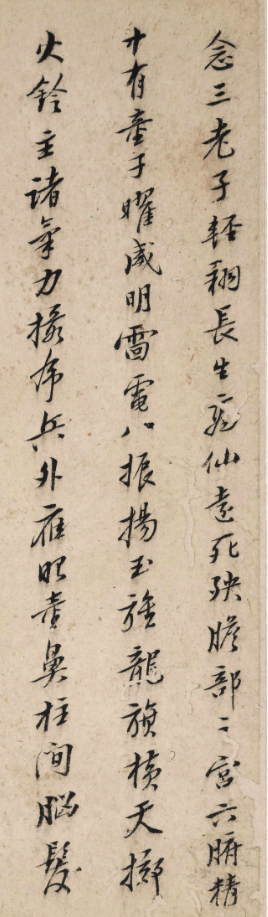 念三老子輕翔長生飛仙遠死殃膽部二宮六腑精
中有童子曜威明雷電八振揚玉旌龍旗横天擲
火鈴主諸氣力攝虎兵外應眼童鼻柱間腦髮